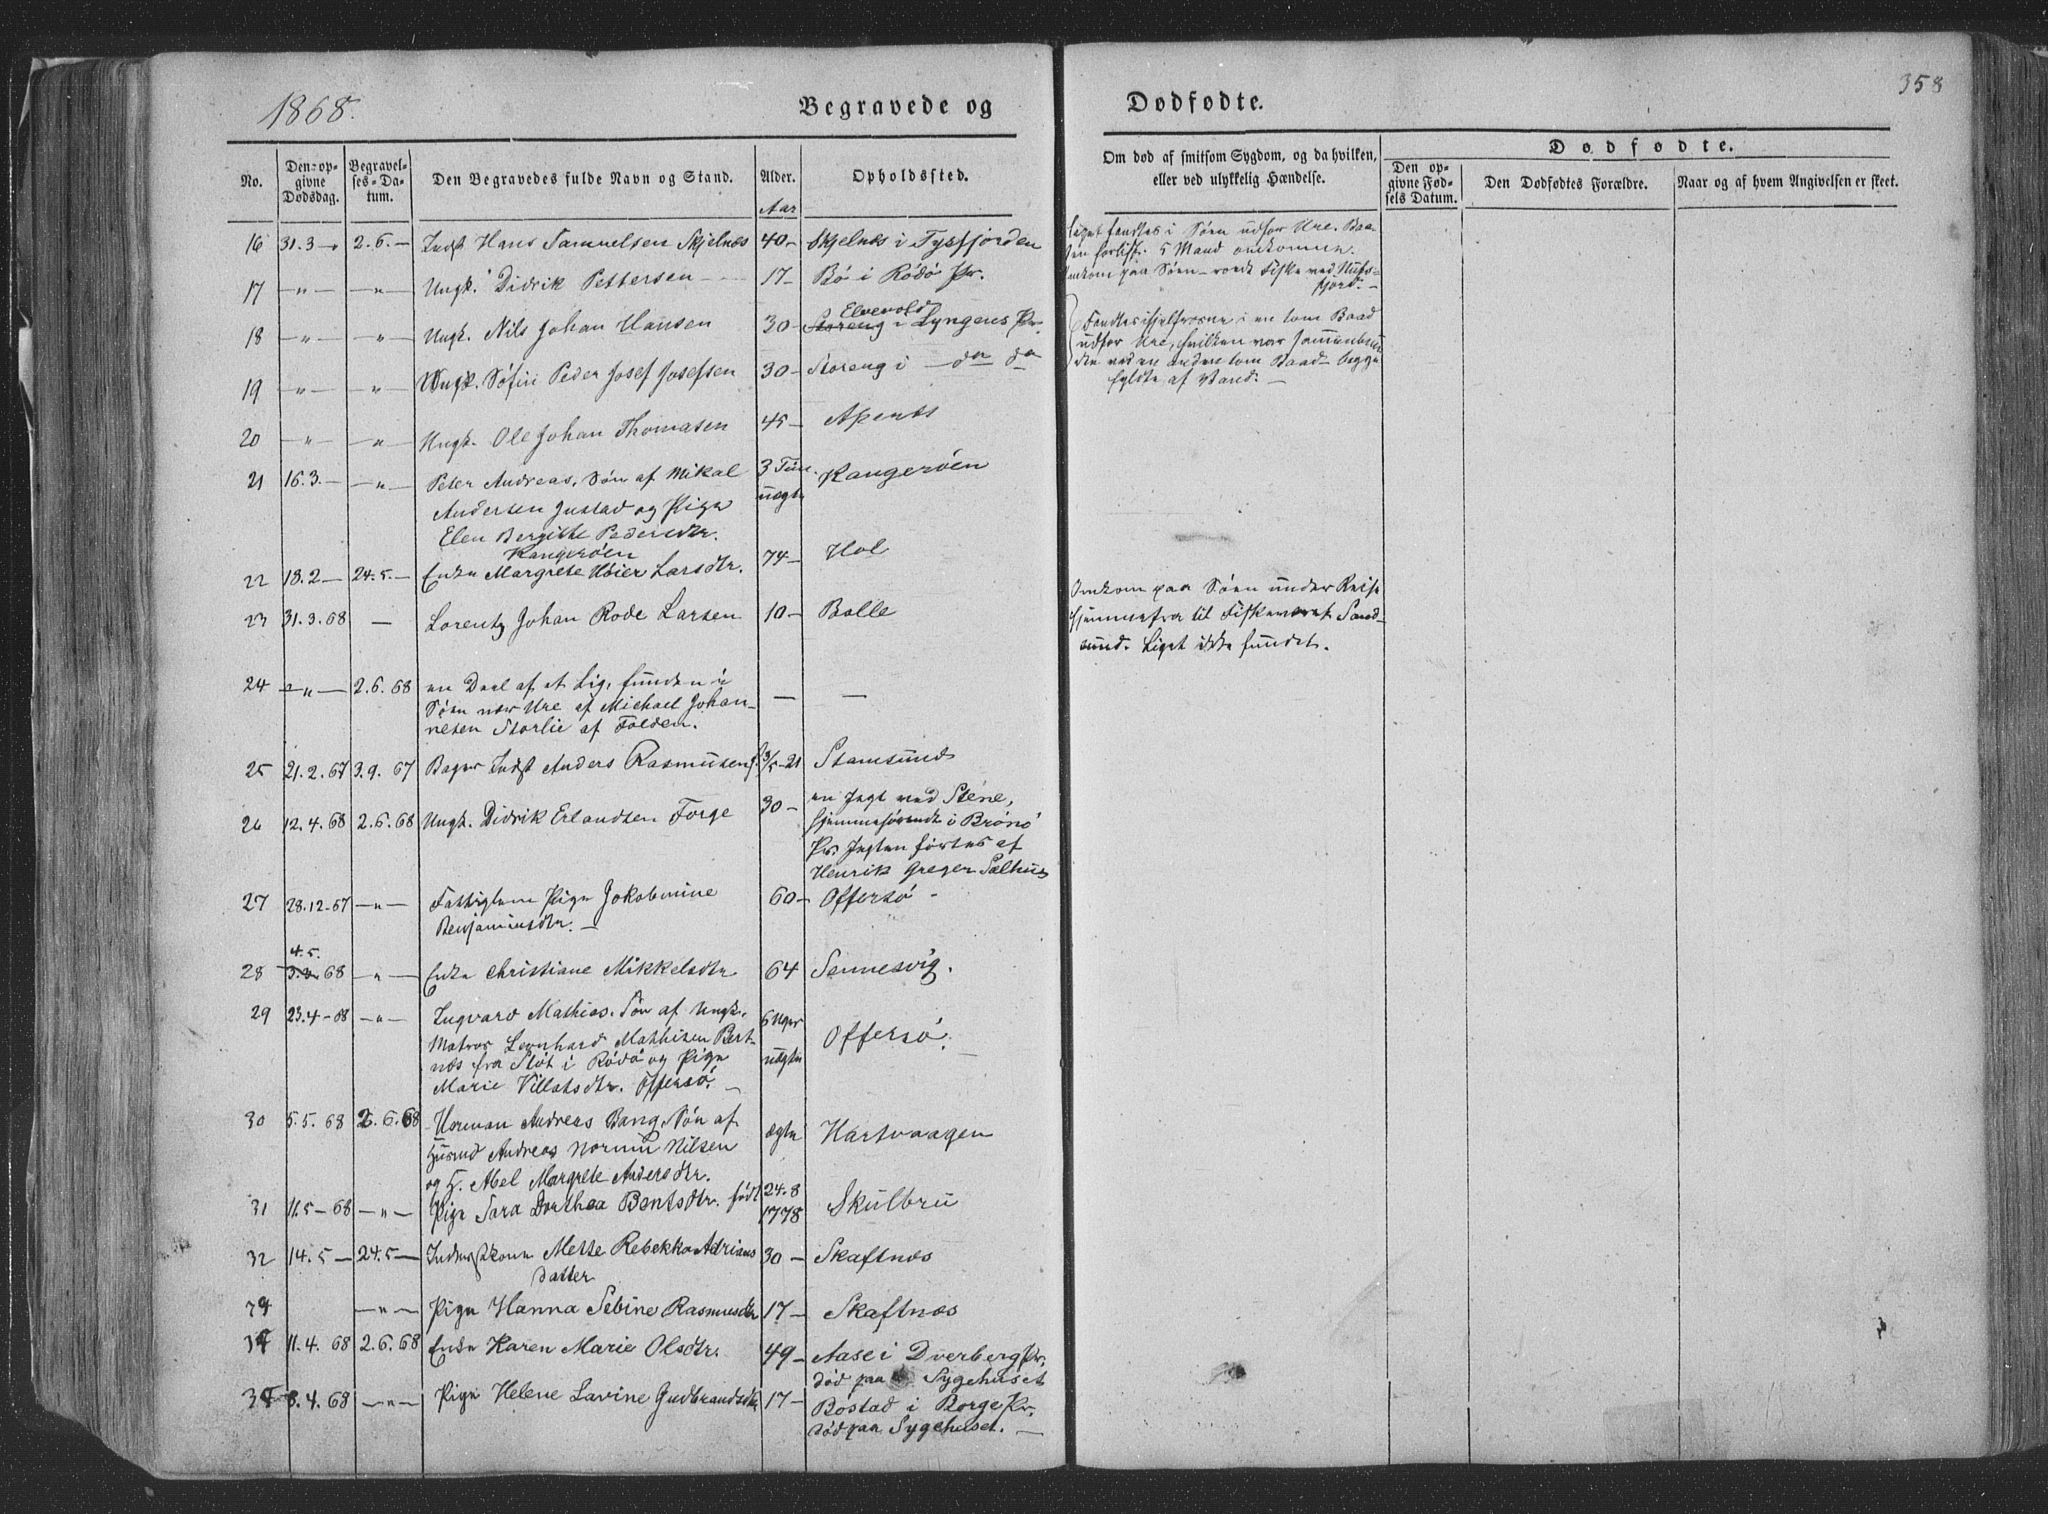 358
1868.
Begravede og Dødfødte.
No.
Den opgivne Dødsdag.
Begravelses-Datum.
Den Begravedes fulde Navn og Stand.
Alder.
Aar
Opholdssted.
Om død af smitsom Sygdom, og da hvilken, eller ved ulykkelig Hændelse.
Dødfødte.
Den opgivne Fødsels Datum.
Den Dødfødtes Forældre.
Naar og af hvem Angivelsen er skeet.
16 31.3 — 2.6. — Indst Hans Samuelsen Skjelnæs 40 — Skjelnæs i Tysfjorden
Liget fandtes i Søen udfor Ure. Baaden forlist. 5 Mand omkomne.
17 — " — — " — Ungk. Didrik Pettersen 17 — Bø i Rødø Pr.
Omkom paa Søen — roede Fiske ved Nufsfjord. —
18 — " — — " — Ungk. Nils Johan Hansen 30 — Elvevold
Storeng i Lyngens Pr.
Fandtes ihjelfrosne i en tom Baad
udfor Ure, hvilken var sammenbunden
den ved en anden tom Baad — begge
fyldte af Vand. —
19 — " — — " — Ungk. Søfin Peder Josef Josefsen 30 — Storeng i — do do
20 — " — — " — Ungk. Ole Johan Thomasen 45 — Apenæs
21 16.3. — — " — Peter Andreas, Søn af Mikal 3 Tim. Kangerøen
Andersen Justad og Pige uægte
Elen Bergitte Pedersdtr.
Kangerøen
22 18.2 — 24.5. — Enke Margrete Høier Larsdtr. 74 — Hol
23 31.3.68 — Lorentz Johan Rode Larsen 10 — Balle
Omkom paa Søen under Reise
hjemmefra til Fiskeværet Sandsund. Liget ikke fundet.
24 — " — 2.6.68 en Deel af et Lig, funden i — —
Søen nær Ure af Michael Johannesen Storlie af Folden.
25 21.2.67 3.9.67 Indst Anders Rasmusen f. 3/5-21 Stamsund
26 12.4.68 2.6.68 Ungk. Didrik Erlandsen Forge 30 — en Jagt ved Stene,
hjemmehørende i Brønø
Pr. Jagten førtes af
Henrik Greger Salhus
27 28.12.67 — " — Fattiglem Pige Jakobmine 60 — Offersø —
Benjaminsdtr. —
28 4.5. 68 — " — Enke Christiane Mikkelsdtr 64 Sennesvig.
29 23.4 — 68 — " — Ingvard Mathias. Søn af Ungk. 6 Uger Offersø.
Matros Leonhard Mathisen Bertnæs fra Støt i Rødø og Pige uægte
Marie Villatsdtr. Offersø. —
30 5.5.68 2.6.68 Herman Andreas Bang, Søn af
Husmd Andreas Normu Nilsen ægte Hartvaagen
og H. Abel Margrete Andersdtr.
31 11.5 — 68 — " — Pige Sara Dorthea Bentsdtr. født 24.8 1778 Skulbru
32 14.5 — 24.5 — Mette Rebekka Adrians 30 — Skaftnæs
datter
— " — Pige Hanna Sebine Rasmusdtr 17 — Skaftnæs
34 11.4.68 2.6.68 Enke Karen Marie Olsdtr. 49 — Aase i Dverberg Pr.
død paa Sygehuset
8.4.68 — " — Pige Helene Lavine Gudbrandsdtr 17 — Bøstad i Borge Pr.
død paa Sygehuset. —